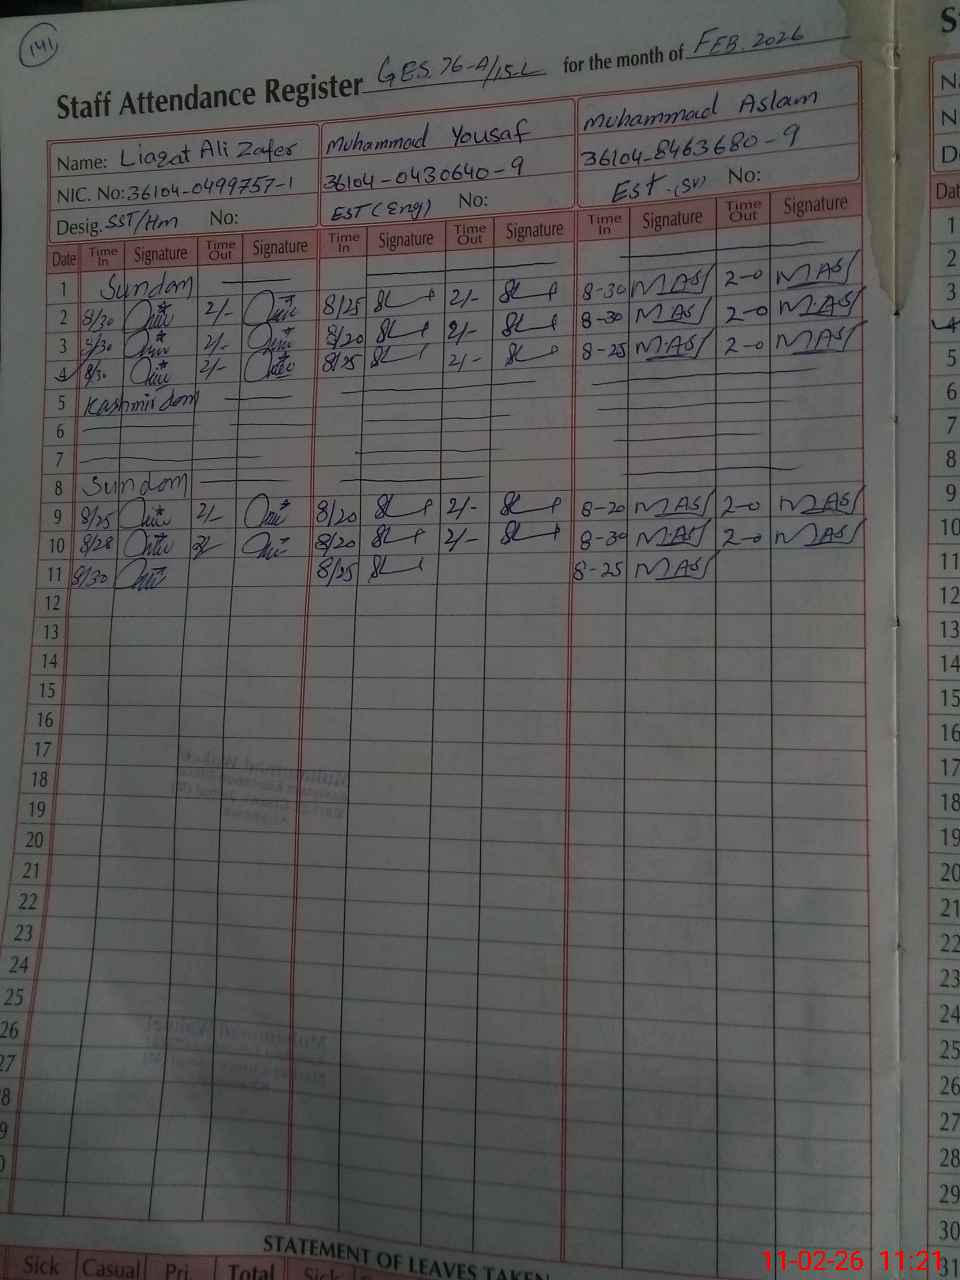 141
Staff Attendance Register GES. 76-A/15-L for the month of FEB. 2026
Name: Liaqat Ali Zafer Muhammad Yousaf Muhammad Aslam
NIC. No: 36104-0499757-1 36104-0430640-9 36104-8463680-9
Desig. SST/Hm No: EST (Eng) No: Est. (SV) No:
Date Time In Signature Time Out Signature Time In Signature Time Out Signature Time In Signature Time Out Signature
1 Sundam
2 8/30 2/- 8/25 2/- 8-30 MAS 2-0 MAS
3 8/30 2/- 8/20 2/- 8-30 MAS 2-0 MAS
4 8/30 2/- 8/25 2/- 8-25 MAS 2-0 MAS
5 Kashmir dam
6
7
8 Sundam
9 8/25 2/- 8/20 2/- 8-20 MAS 2-0 MAS
10 8/28 2/- 8/20 2/- 8-30 MAS 2-0 MAS
11 8/30 8/25 8-25 MAS
12
13
14
15
16
17
18
19
20
21
22
23
24
25
26
27
8
9
0
STATEMENT OF LEAVES TAKEN
Sick Casual Pri. Total Sick
S
Na
N
D
Dat
1
2
3
4
5
6
7
8
9
10
11
12
13
14
15
16
17
18
19
20
21
22
23
24
25
26
27
28
29
30
31
11-02-26 11:21